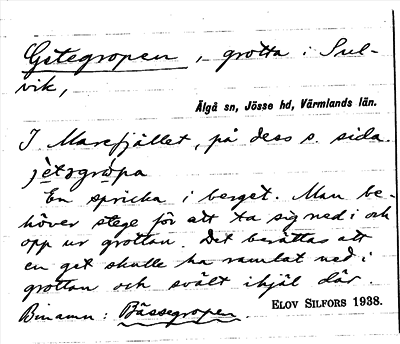 Getegropen, grotta i Sul-
vik,
Älgå sn, Jösse hd, Värmlands län.
I Marefjället, på dess s. sida.
jètəgròpa
En spricka i berget. Man be-
höver stege för att ta sig ned i och
opp ur grottan. Det berättas att
en get skulle ha ramlat ned i
grottan och svält ihjäl där.
Binamn: Bässegropen.
ELOV SILFORS 1938.